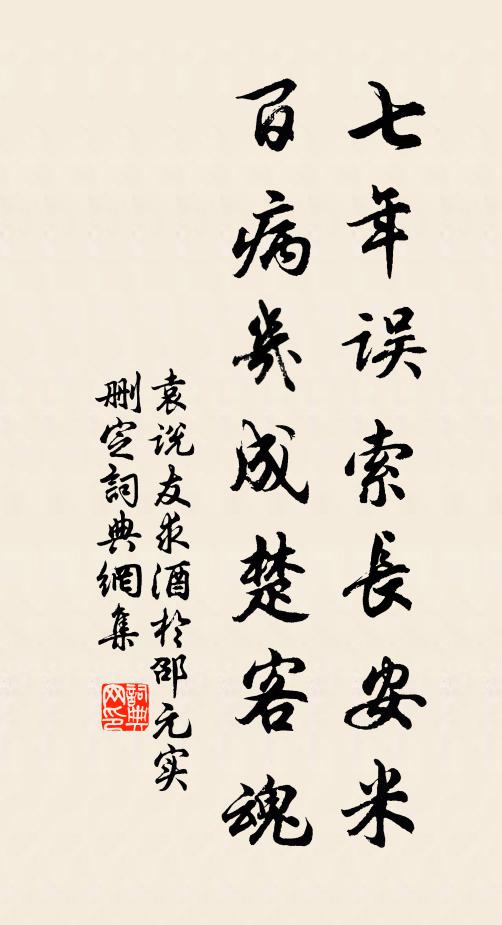 七年误索長安米
百病幾成楚客魂
袁说友求酒於邵元实
删定詞典網集
詞典网印